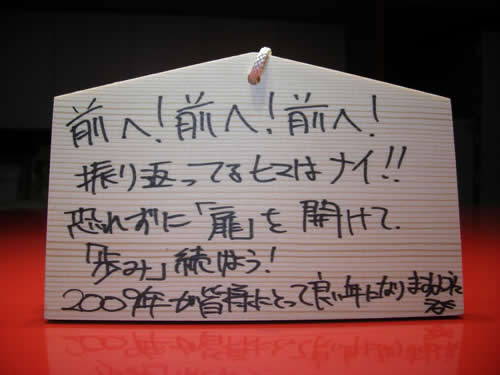 前へ!前へ!前へ!
振り返ってるヒマはナイ!!
恐れずに「扉」を開けて
「歩み」続けよう!
2009年が皆様にとって良い年になりますように